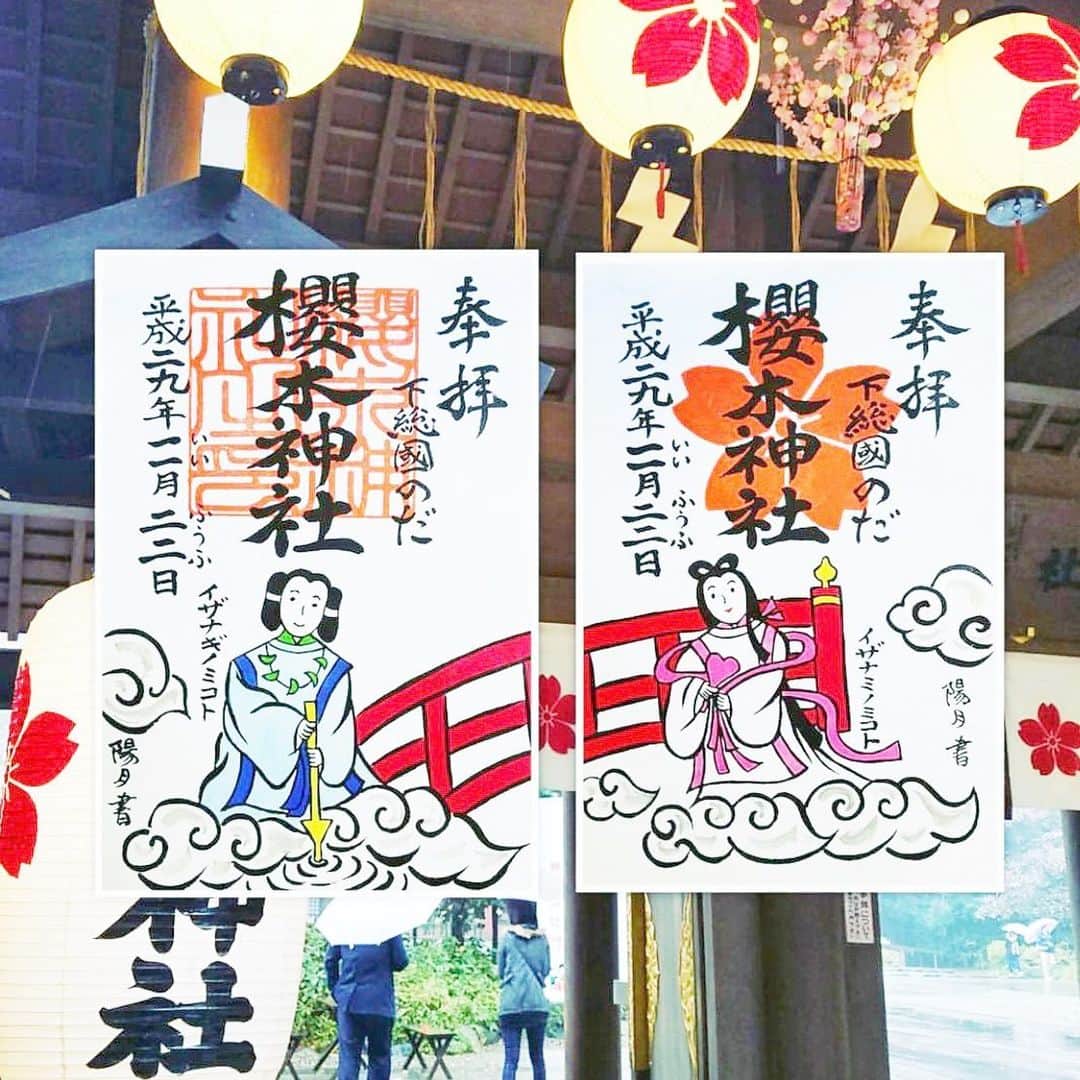 奉拝
下総國のだ
櫻木神社
いい ふうふ
平成二九年一一月二二日
イザナギノミコト
陽月書
奉拝
下総國のだ
櫻木神社
いい ふうふ
平成二九年一一月二二日
イザナミノミコト
陽月書
神社